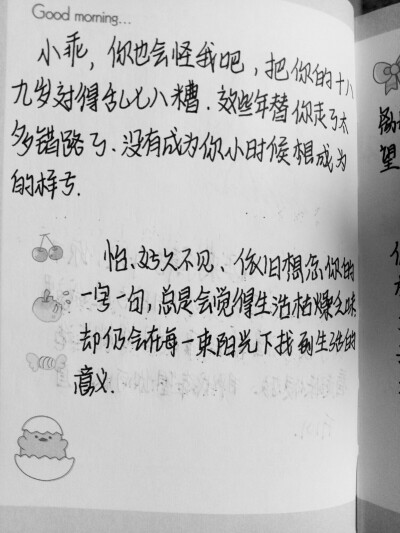 Good morning...
小乖，你也会怪我吧，把你的十八
九岁对得乱七八糟.这些年替你走了太
多错路了.没有成为你小时候想成为
的样子.
好久不见、依旧想念你的
一字一句,总是会觉得生活枯燥乏味
却仍会在每一束阳光下找到生活的
意义.
望